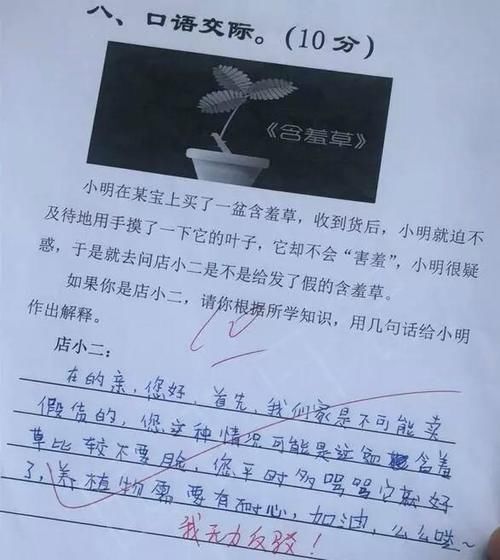 八、口语交际。(10分)
《含羞草》
小明在某宝上买了一盆含羞草，收到货后，小明就迫不
及待地用手摸了一下它的叶子，它却不会“害羞”，小明很疑
惑，于是就去问店小二是不是给发了假的含羞草。
如果你是店小二，请你根据所学知识，用几句话给小明
作出解释。
10
店小二：
在的亲，您好，首先，我们家是不可能卖
假货的，您这种情况可能是这颗含羞
草比较不要脸，您平时多骂骂它就好
了，养植物需要有耐心，加油，么么哒~
我无力反驳！